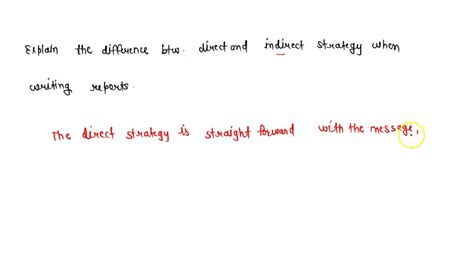 Explain the difference btw. direct and indirect strategy when
writing reports.
The direct strategy is straight forward with the message,